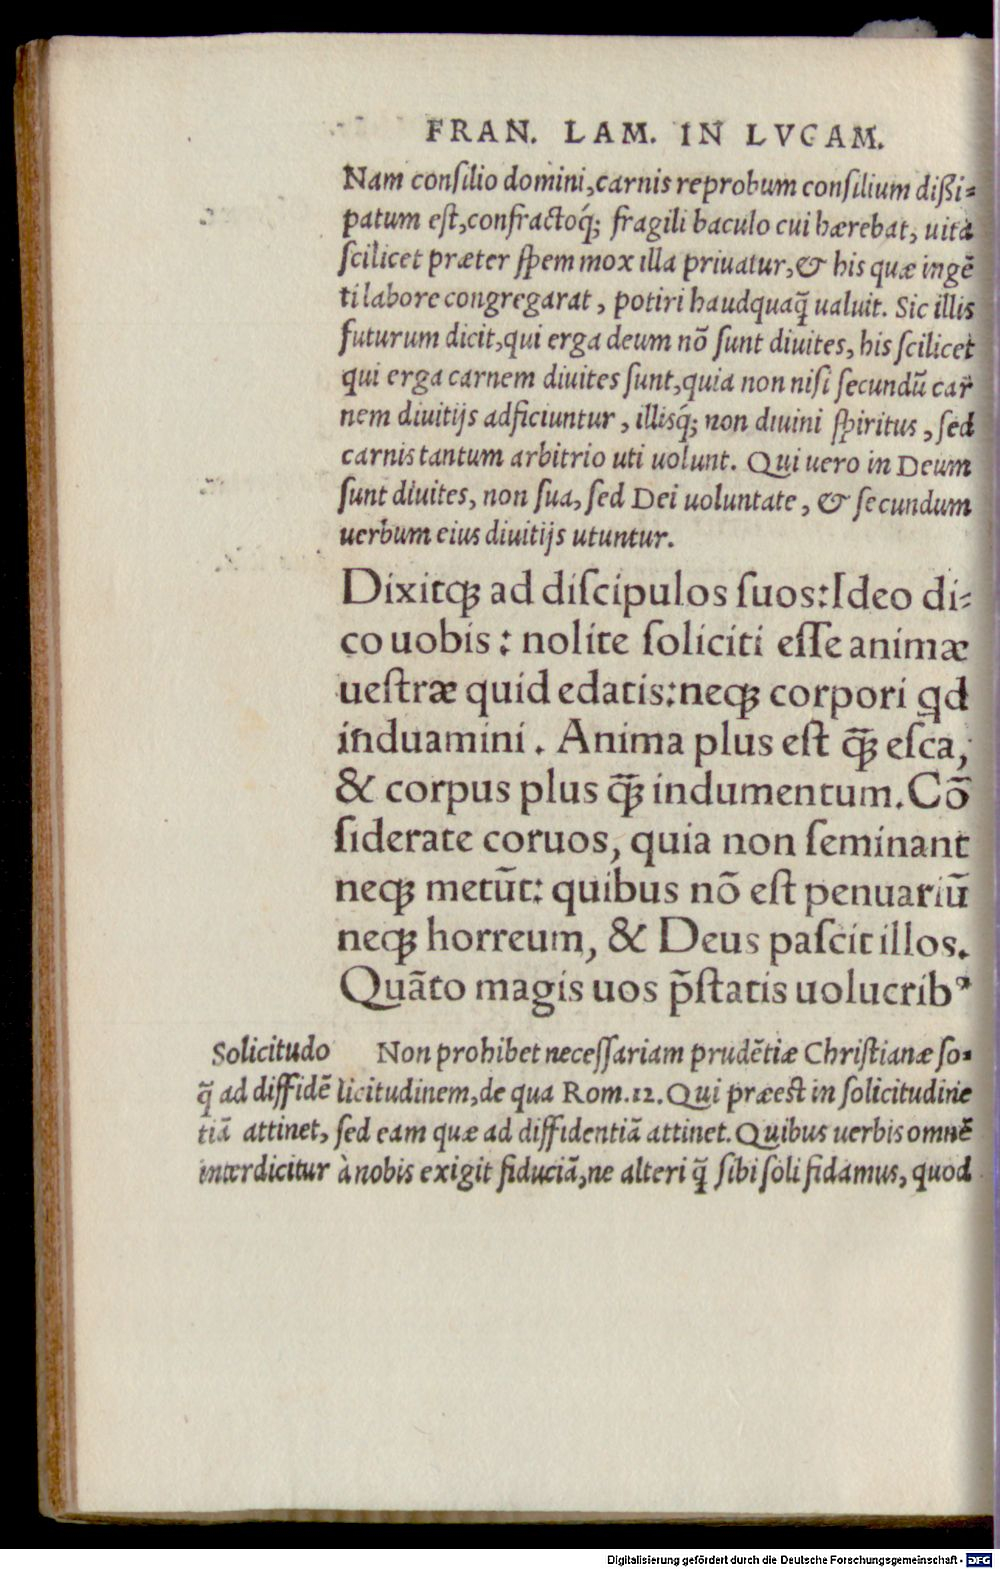 FRAN. LAM. IN LVCAM.
Nam consilio domini, carnis reprobum consilium dißi⸗
patum est, confractoq́; fragili baculo cui hærebat, uita
scilicet præter spem mox illa priuatur, & his quæ ingẽ
ti labore congregarat, potiri haudquaq̃ ualuit. Sic illis
futurum dicit, qui erga deum nõ sunt diuites, his scilicet
qui erga carnem diuites sunt, quia non nisi secundũ car
nem diuitijs adficiuntur, illisq́; non diuini spiritus, sed
carnis tantum arbitrio uti uolunt. Qui uero in Deum
sunt diuites, non sua, sed Dei uoluntate, & secundum
uerbum eius diuitijs utuntur.
Dixitq; ad discipulos suos: Ideo di⸗
co uobis: nolite soliciti esse animæ
uestræ quid edatis: neq; corpori qd
induamini. Anima plus est q̃; esca,
& corpus plus q̃; indumentum. Cõ
siderate coruos, quia non seminant
neq; metũt: quibus nõ est penuariũ
neq; horreum, & Deus pascit illos.
Quãto magis uos p̃statis uolucribꝰ
Solicitudo
q̃ ad diffidẽ
tiã attinet,
interdicitur
Non prohibet necessariam prudẽtiæ Christianæ so⸗
licitudinem, de qua Rom. 12. Qui præest in solicitudine
sed eam quæ ad diffidentiã attinet. Quibus uerbis omnẽ
à nobis exigit fiduciã, ne alteri q̃ sibi soli fidamus, quod
Digitalisierung gefördert durch die Deutsche Forschungsgemeinschaft - DFG